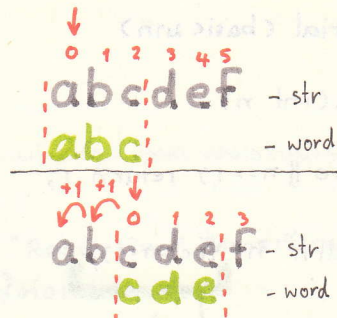 0 1 2 3 4 5
abcdef - str
abc - word
+1 +1 0 1 2 3
abcdef - str
cde - word